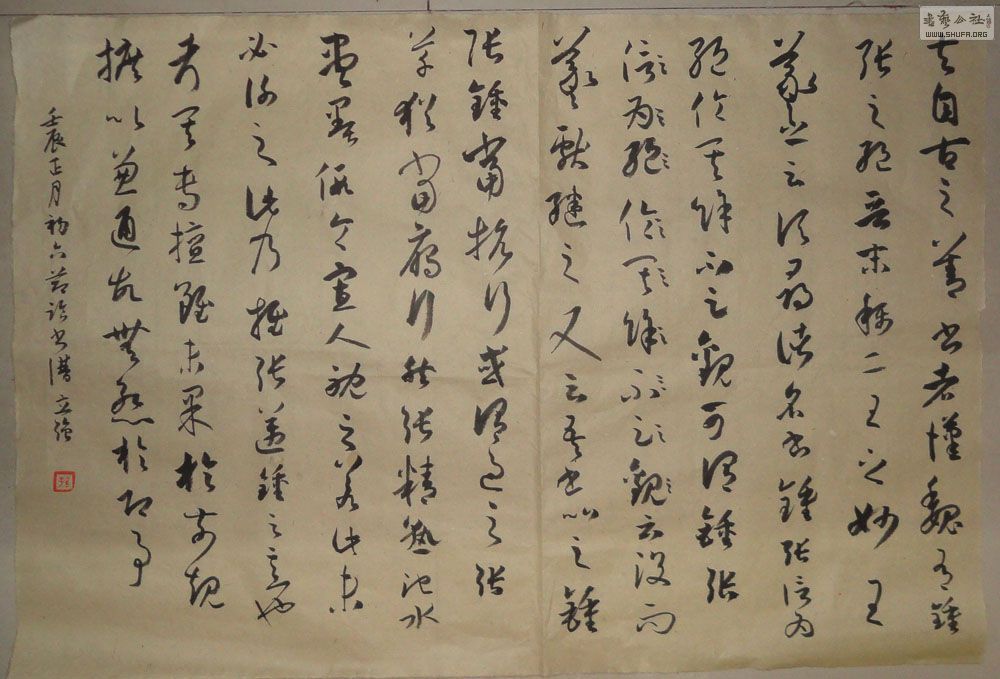 夫自古之善書者漢魏有鍾
張之絕晉末稱二王之妙王
羲之云頃尋諸名書鍾張信為
絕倫其餘不足觀可謂鍾張
信為絕倫其餘不足觀云沒而
羲獻繼之又云吾書比之鍾
張鍾當抗行或謂過之張
草猶當雁行然張精熟池水
盡墨假令寡人耽之若此未
必謝之此乃推張邁鍾之意也
考其專擅雖未果於前規
摭以兼通故無慚於即事
壬辰正月初六節臨書譜立強
書藝公社
WWW.SHUFA.ORG